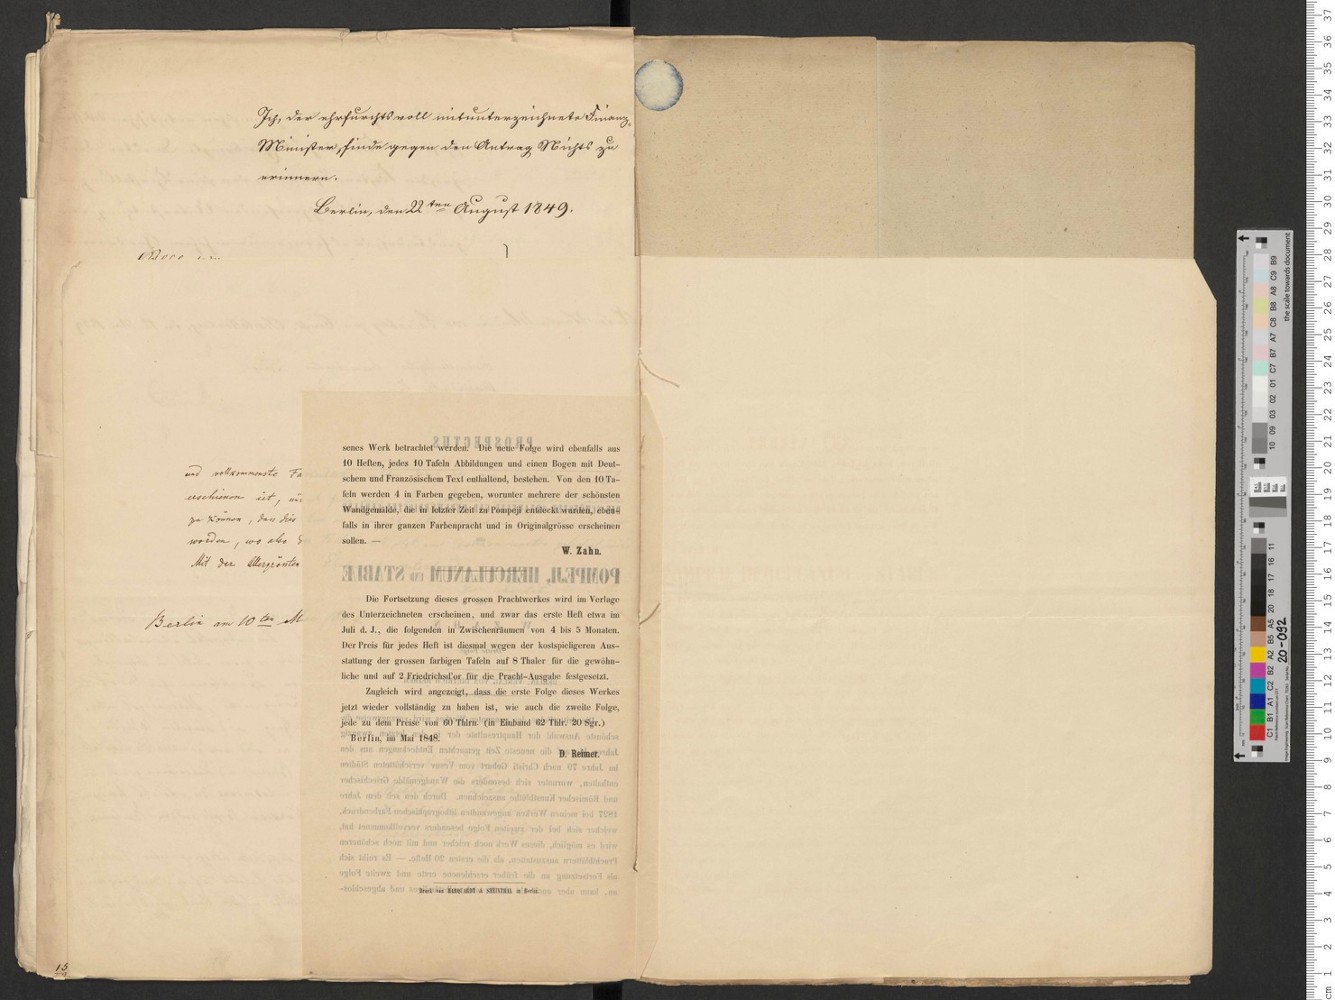 Ich, der ehrfurchtsvoll mitunterzeichnete Finanz-
Minister, finde gegen den Antrag Nichts zu
erinnern.
Berlin, den 22ten August 1849.
und vollkommenste Fa
erschienen ist,
zu können, dass dies
worden, wo also
Mit der Allergrössten
Berlin am 10ten M
senes Werk betrachtet werden. Die neue Folge wird ebenfalls aus
10 Heften, jedes 10 Tafeln Abbildungen und einen Bogen mit Deut-
schem und Französischem Text enthaltend, bestehen. Von den 10 Ta-
feln werden 4 in Farben gegeben, worunter mehrere der schönsten
Wandgemälde, die in letzter Zeit zu Pompeji entdeckt wurden, eben-
falls in ihrer ganzen Farbenpracht und in Originalgrösse erscheinen
sollen. —
W. Zahn.
Die Fortsetzung dieses grossen Prachtwerkes wird im Verlage
des Unterzeichneten erscheinen, und zwar das erste Heft etwa im
Juli d. J., die folgenden in Zwischenräumen von 4 bis 5 Monaten.
Der Preis für jedes Heft ist diesmal wegen der kostspieligeren Aus-
stattung der grossen farbigen Tafeln auf 8 Thaler für die gewöhn-
liche und auf 2 Friedrichsd'or für die Pracht-Ausgabe festgesetzt.
Zugleich wird angezeigt, dass die erste Folge dieses Werkes
jetzt wieder vollständig zu haben ist, wie auch die zweite Folge,
jede zu dem Preise von 60 Thlrn. (in Einband 62 Thlr. 20 Sgr.)
Berlin, im Mai 1848.
D. Reimer.
Druck von MARQUARDT & STEINTHAL in Berlin.
15
the scale towards document
20-092